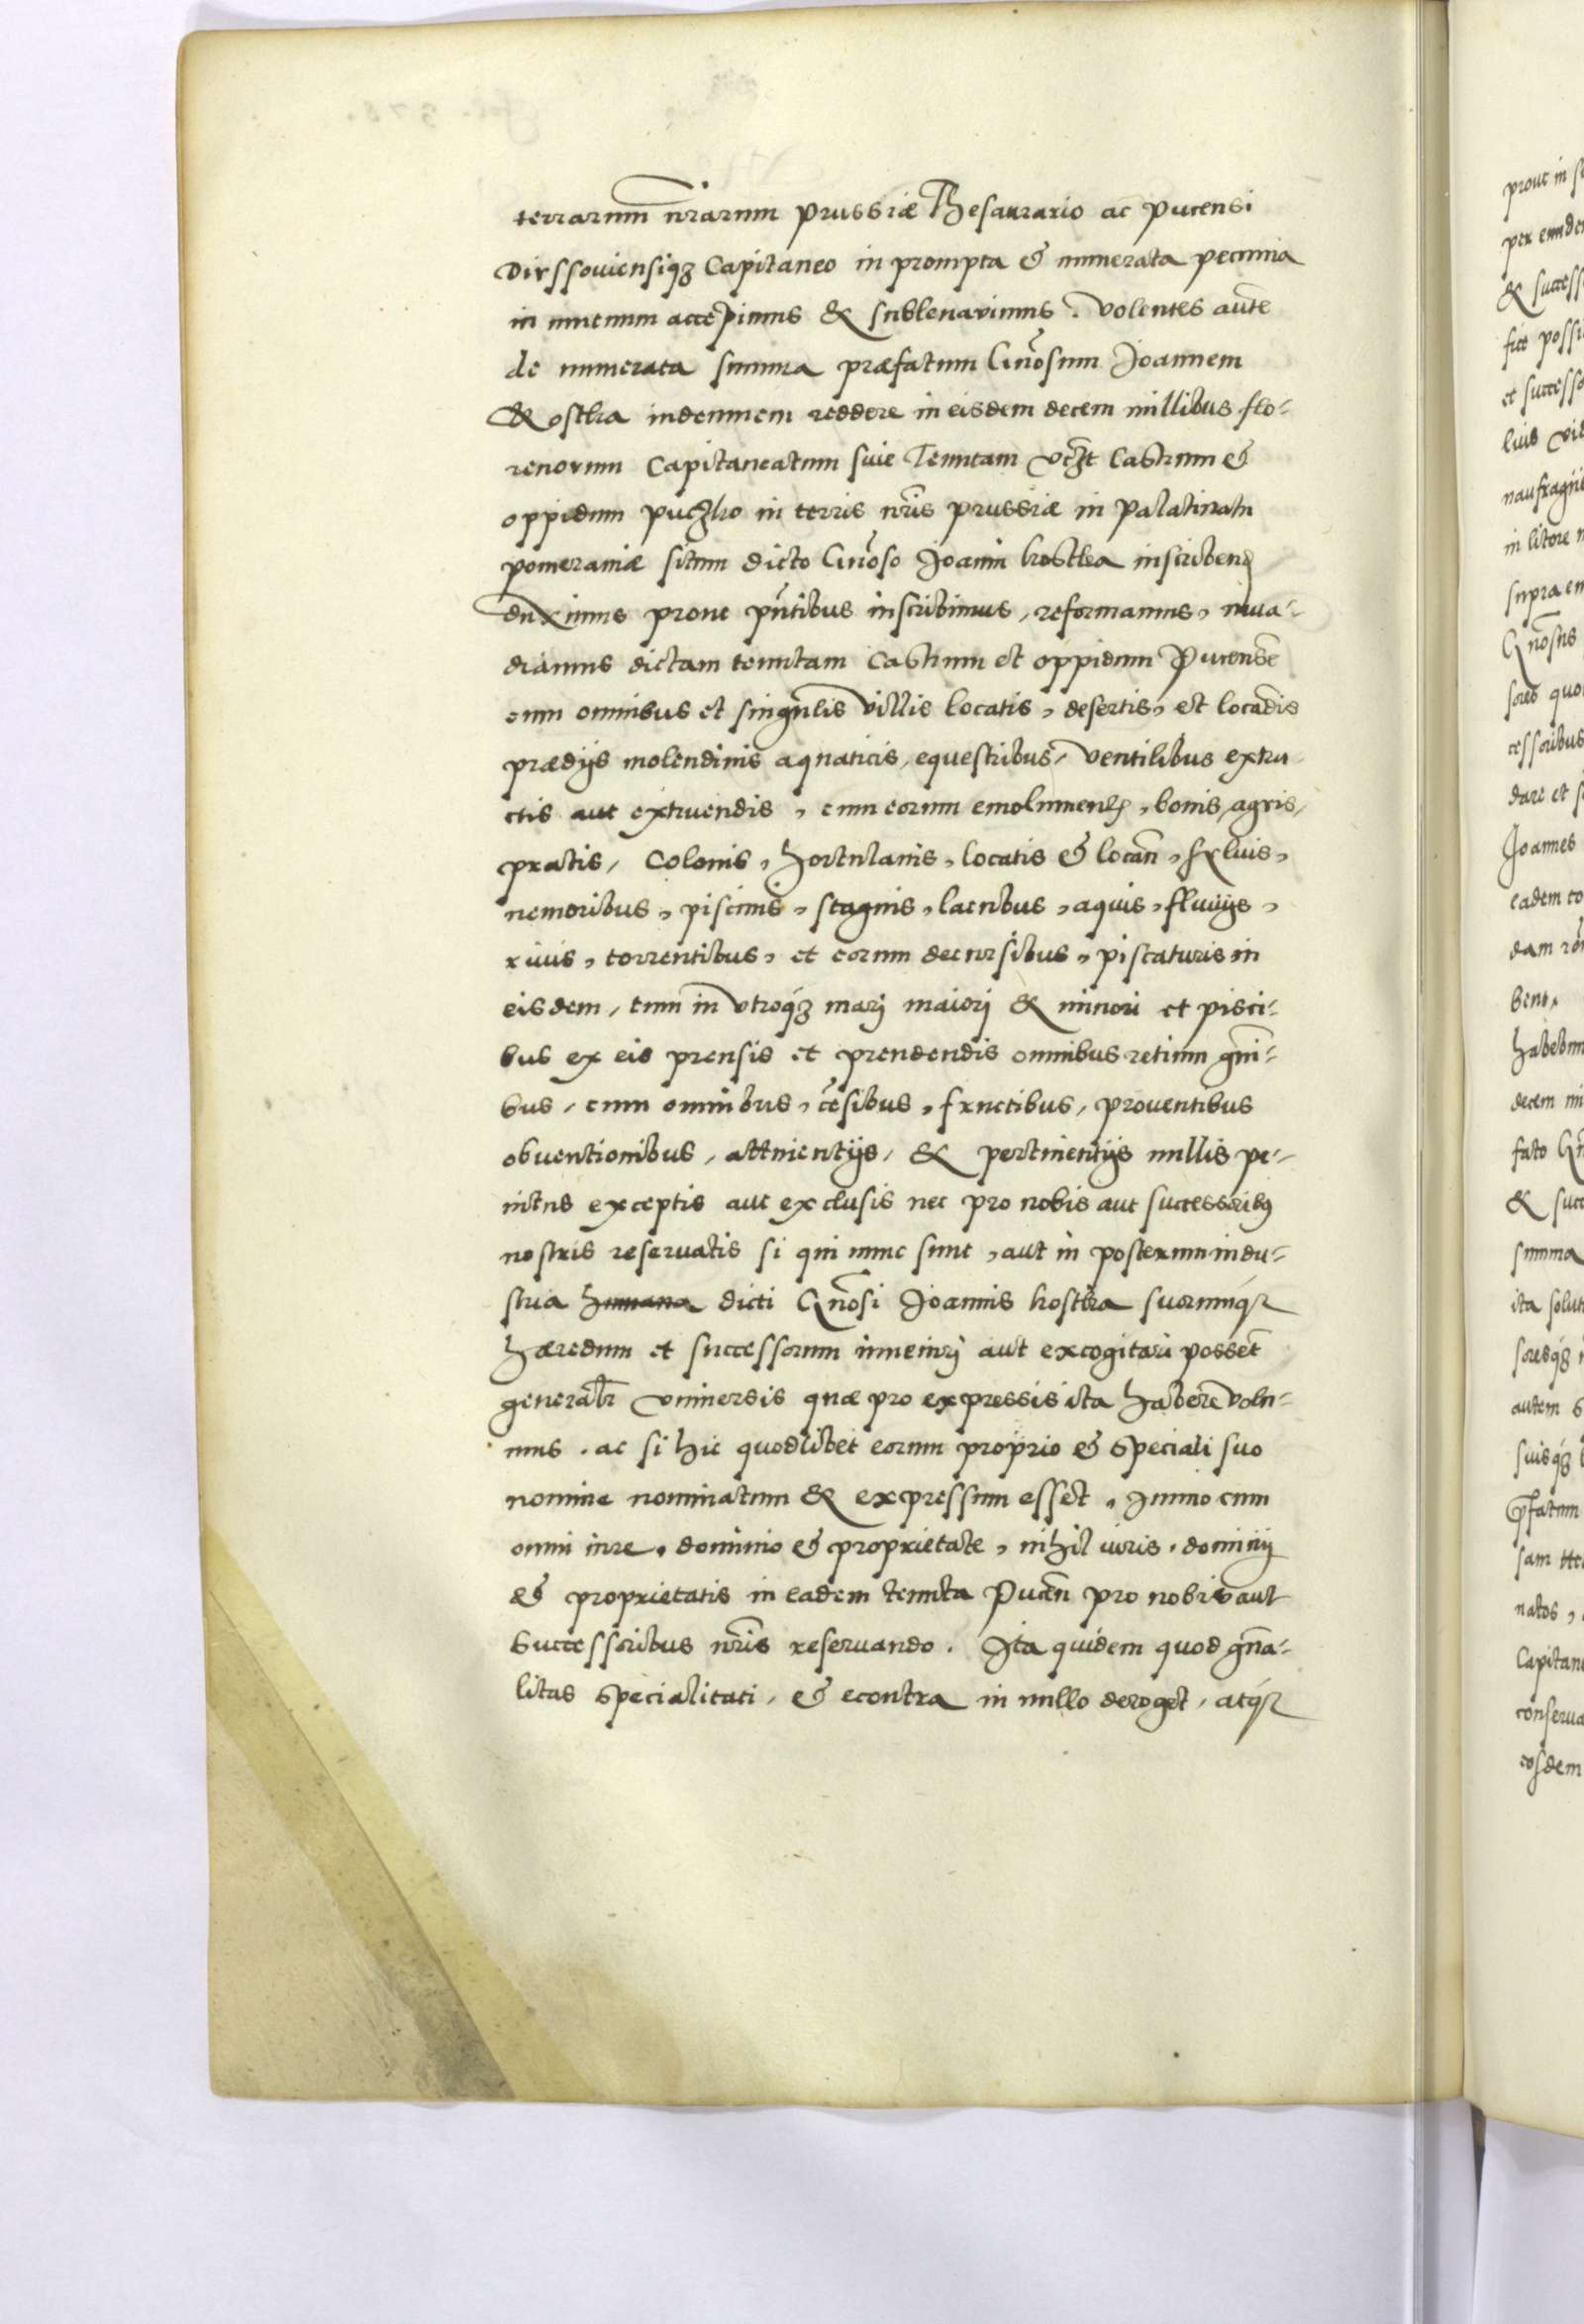 terrarum nrarum Prussiæ Thesaurario ac Pucensi
Dirssouiensiqz Capitaneo in prompta & numerata pecunia
in mutuum accepimus & subleuauimus. Volentes aute
de numerata summa præfatum Gnosum Joannem
Kostka indemnem reddere in eisdem decem millibus flo-
renorum Capitaneatum siue Tenutam vczt Castrum &
oppidum Puczko in terris nris Prussiæ in Palatinatu
Pomeraniæ situm dicto Gnoso Joanni kostka inscribend
duximus prout pntibus inscribimus, reformamus, inua-
diamus dictam tenutam Castrum et oppidum Pucense
cum omnibus et singulis villis locatis, desertis, et locadis
prædijs molendinis aquaticis, equestribus, ventilibus extru
ctis aut extruendis, cum eorum emolument, bonis, agris,
pratis, Colonis, hortulanis, locatis & locan, syluis,
nemoribus, piscinis, stagnis, lacubus, aquis, fluuijs,
riuis, torrentibus, et eorum decursibus, piscaturis in
eisdem, tum in vtroqz mari maiori & minori et pisci-
bus ex eis prensis et prendendis omnibus retium gni-
bus, cum omnibus, cesibus, fructibus, prouentibus
obuentionibus, attinentijs, & pertinentijs nullis pe-
nitus exceptis aut exclusis nec pro nobis aut successorib9
nostris reseruatis si qui nunc sunt, aut in posterum indu-
stria humana dicti Gnosi Joannis kostka suorumqz
hæredum et successorum inueniri aut excogitari posset
generalr vniuersis quæ pro expressis ita habere volu-
mus. ac si hic quodlibet eorum proprio & speciali suo
nomine nominatum & expressum esset. Immo cum
omni iure. dominio & proprietate, nihil iuris. dominij
& proprietatis in eadem tenuta Pucen pro nobis aut
Successoribus nris reseruando. Ita quidem quod gna-
litas specialitati, & econtra in nullo deroget, atqz